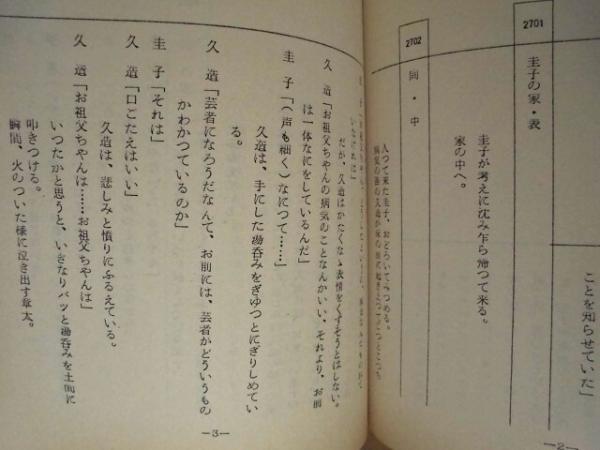 ことを知らせていた」
2701
圭子の家・表
圭子が考えに沈み乍ら帰つて来る。
家の中へ。
2702
同・中
入つて来た圭子、おどろいてみつめる。
だが、久造はかたくなな表情をくずそうとはしない。
久造「お祖父ちやんの病気のことなんかいい、それより、お前
は一体なにをしているんだ」
圭子「(声も細く)なにつて……」
久造は、手にした湯呑みをぎゆつとにぎりしめてい
る。
久造「芸者になろうだなんて、お前には、芸者がどういうもの
かわかつているのか」
圭子「それは」
久造「口ごたえはいい」
久造は、悲しみと憤りにふるえている。
久造「お祖父ちやんは……お祖父ちやんは」
いつたかと思うと、いきなりパッと湯呑みを土間に
叩きつける。
瞬間、火のついた様に泣き出す章太。
—3—
—2—